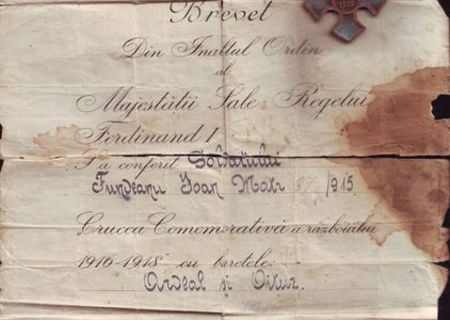 Brevet
Din Inaltul Ordin
al
Majestății Sale Regelui
Ferdinand I
S'a conferit Soldatului
Fundeanu Ioan Matr 87/915
Crucea Comemorativă a războiului
1916-1918 cu baretele:
Ardeal și Oituz.